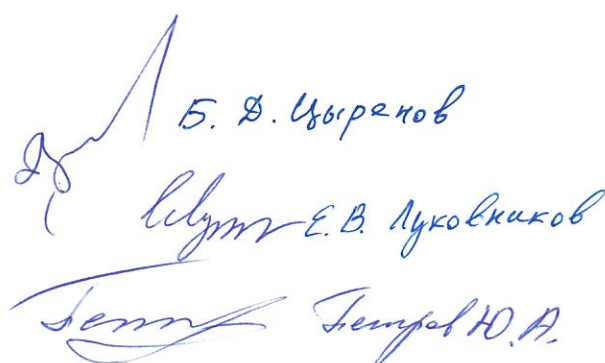 Б. Д. Цыренов
Е. В. Луковников
Петров Ю. А.